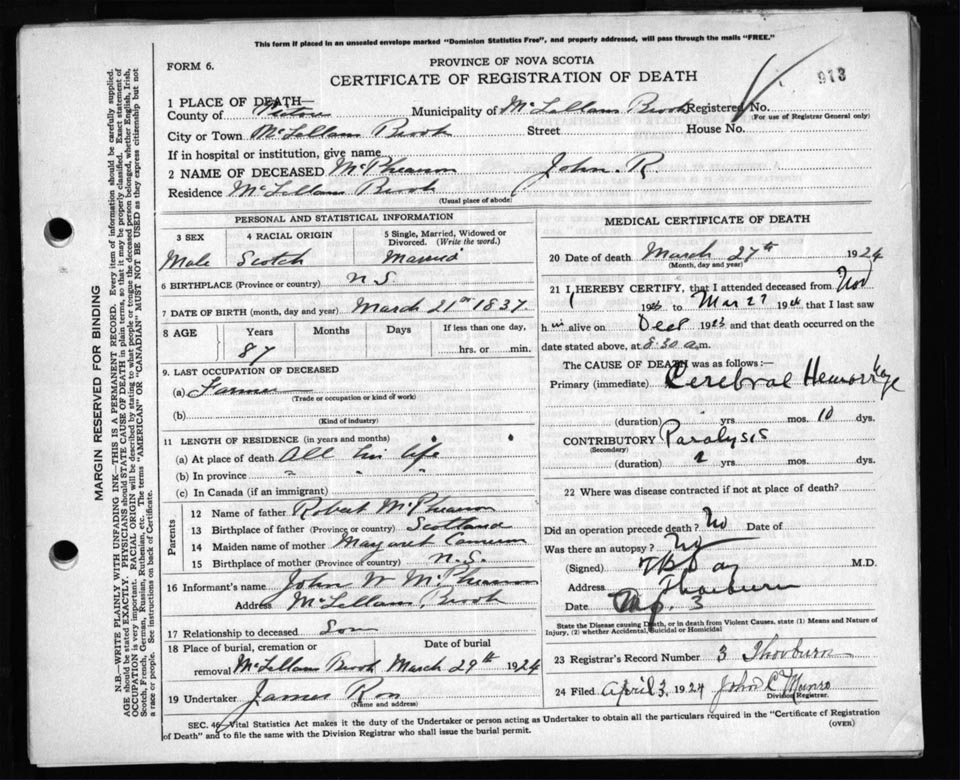 This form if placed in an unsealed envelope marked "Dominion Statistics Free", and properly addressed, will pass through the mails "FREE."
FORM 6.
PROVINCE OF NOVA SCOTIA
CERTIFICATE OF REGISTRATION OF DEATH
913
1 PLACE OF DEATH—
County of Pictou Municipality of McLellans Brook Registered No.
(For use of Registrar General only)
City or Town McLellans Brook Street House No.
If in hospital or institution, give name
2 NAME OF DECEASED McPhearson John. R.
Residence McLellans Brook
(Usual place of abode)
PERSONAL AND STATISTICAL INFORMATION
3 SEX 4 RACIAL ORIGIN 5 Single, Married, Widowed or Divorced. (Write the word.)
Male Scotch Married
6 BIRTHPLACE (Province or country) N.S.
7 DATE OF BIRTH (month, day and year) March 21st 1837
8 AGE Years Months Days If less than one day,
87 hrs. or min.
9. LAST OCCUPATION OF DECEASED
(a) Farmer
(Trade or occupation or kind of work)
(b)
(Kind of industry)
11 LENGTH OF RESIDENCE (in years and months)
(a) At place of death All his life
(b) In province " " "
(c) In Canada (if an immigrant)
Parents
12 Name of father Robert McPhearson
13 Birthplace of father (Province or country) Scotland
14 Maiden name of mother Margaret Cameron
15 Birthplace of mother (Province or country) N.S.
16 Informant's name John W McPhearson
Address McLellans Brook
17 Relationship to deceased Son
18 Place of burial, cremation or Date of burial
removal McLellans Brook March 29th 1924
19 Undertaker James
(Name and address)
MEDICAL CERTIFICATE OF DEATH
20 Date of death March 27th 1924
(Month, day and year)
21 I HEREBY CERTIFY, that I attended deceased from Nov
1923 to Mar 27 1924 that I last saw
him alive on 1923 and that death occurred on
date stated above, at 8.30 a.m.
The CAUSE OF DEATH was as follows:—
Primary (immediate) Cerebral Hemorrhage
(duration) yrs mos. 10 dys.
CONTRIBUTORY Paralysis
(Secondary)
(duration) yrs mos. dys.
22 Where was disease contracted if not at place of death?
Did an operation precede death? No Date of
Was there an autopsy? No
(Signed) M.D.
Address Thorburn
Date Ap. 3
State the Disease causing Death, or in death from Violent Causes, state (1) Means and Nature of
Injury, (2) whether Accidental, Suicidal or Homicidal
23 Registrar's Record Number 3 Thorburn
24 Filed April 3, 1924 John L Munro
Division Registrar.
SEC. 46 Vital Statistics Act makes it the duty of the Undertaker or person acting as Undertaker to obtain all the particulars required in the "Certificate of Registration
of Death" and to file the same with the Division Registrar who shall issue the burial permit.
(OVER)
MARGIN RESERVED FOR BINDING
N.B.—WRITE PLAINLY WITH UNFADING INK—THIS IS A PERMANENT RECORD. Every item of information should be carefully supplied.
AGE should be stated EXACTLY. PHYSICIANS should STATE CAUSE OF DEATH in plain terms, so that it may be properly classified. Exact statement of
OCCUPATION is very important. RACIAL ORIGIN will be described by stating to what people or tongue the deceased person belonged, whether English, Irish,
Scotch, French, German, Russian, Ruthenian, etc. The terms "AMERICAN" or "CANADIAN" MUST NOT BE USED as they express citizenship but not
a race or people. See instructions on back of Certificate.